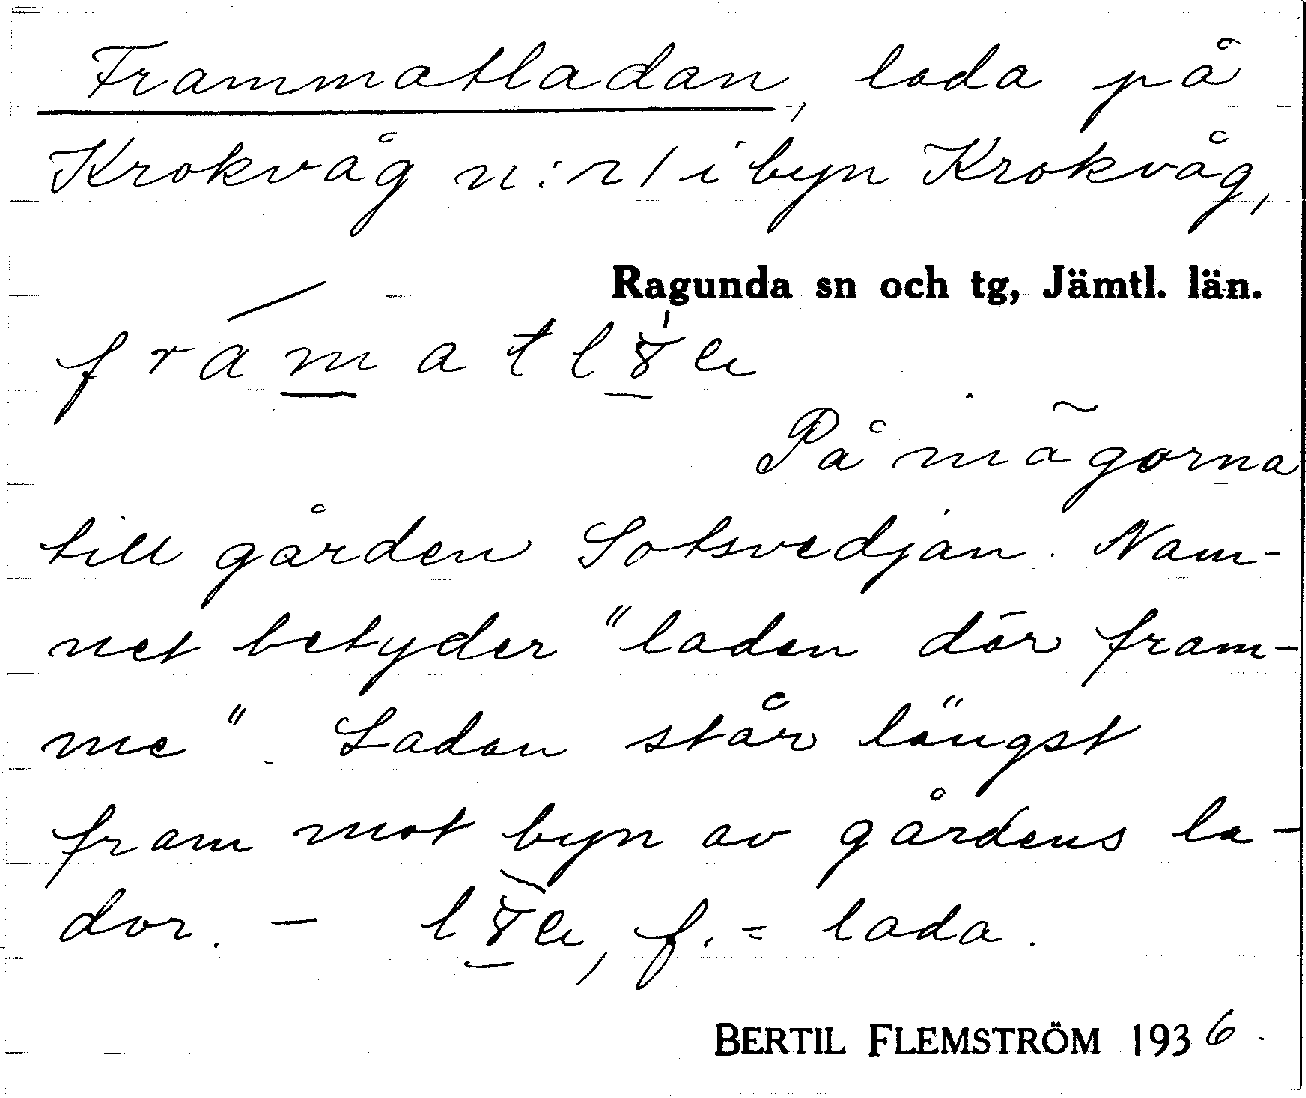 Frammatladan, lada på
Krokvåg n:r 1 i byn Krokvåg,
Ragunda sn och tg, Jämtl. län.
På mägorna
till gården Sotsvedjan. Nam-
net betyder "ladan där fram-
me". Ladan står längst
fram mot byn av gårdens la-
dor. — f. = lada.
BERTIL FLEMSTRÖM 1936.